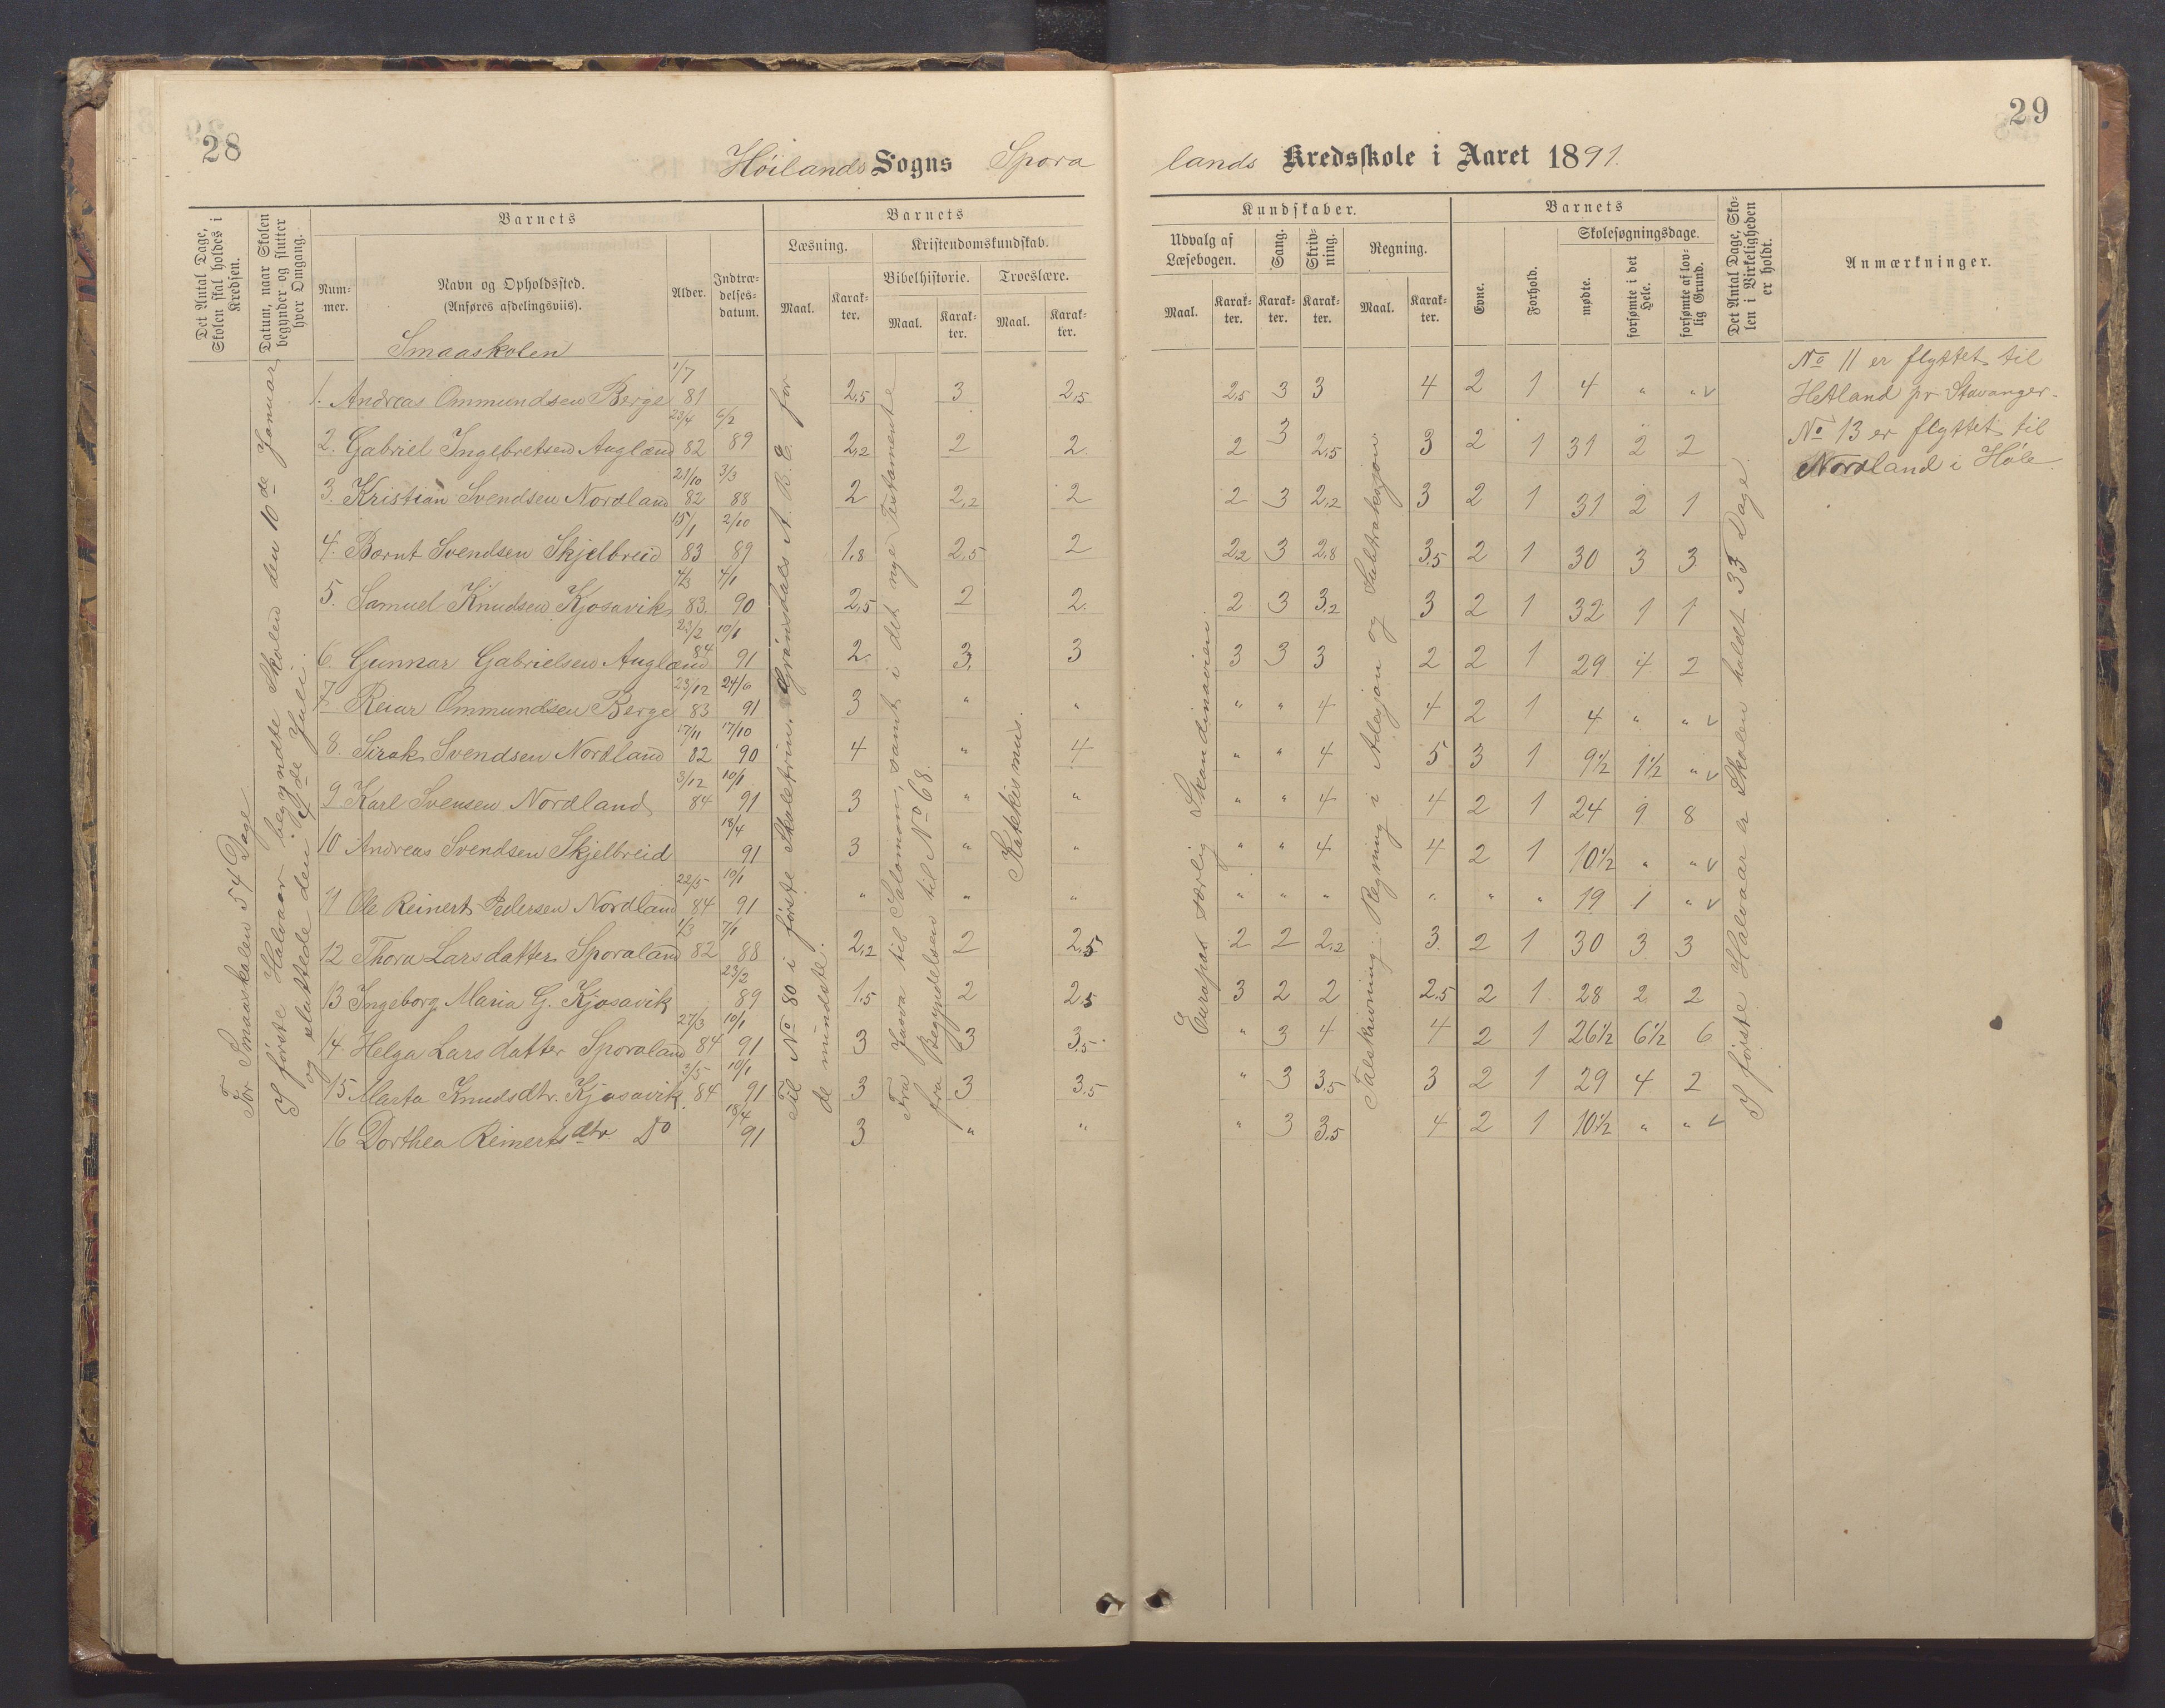 28
Høilands Sogns Spora
Det Antal Dage, Skolen skal holdes i Kredsen.
Datum, naar Skolen begynder og slutter hver Omgang.
Barnets
Nummer.
Navn og Opholdssted.
(Anføres afdelingsviis).
Alder.
Indtrædelsesdatum.
Barnets
Læsning.
Kristendomskundskab.
Bibelhistorie.
Troeslære.
Maal.
Karakter.
Maal.
Karakter.
Maal.
Karakter.
Smaaskolen
For Smaaskolen 54 Dage
I første Halvaar begyndte Skolen den 10de Januar
og sluttede den 4de Juli.
Til No 80 i første Skoletrin, Grønsdals A. B. C. for
de mindste.
Fra Josva til Salomon, samt i det nye Testamente
fra Begyndelsen til No 68.
Katekismus.
1. Andreas Ommundsen Berge 1/7 81 2,5 3 2,5
2. Gabriel Ingebretsen Auglænd 23/4 82 6/2 89 2,2 2 2.
3. Kristian Svendsen Nordland 21/10 82 3/3 88 2 2,2 2
4. Bornt Svendsen Skjelbreid 15/1 83 2/10 89 1,8 2,5 2
5. Samuel Knudsen Kjosavik 4/3 83. 4/1 90 2,5 2 2.
6. Gunnar Gabrielsen Auglænd 23/2 84 10/1 91 2. 3. 3
7. Reiar Ommundsen Berge 23/12 83 24/6 91 3 " "
8. Sirak Svendsen Nordland 17/11 82 17/10 90 4 " 4
9 Karl Svensen Nordland 3/12 84 10/1 91 3 " "
10 Andreas Svendsen Skjelbreid 18/4 91 3 " "
11 Ole Reinert Pedersen Nordland 22/5 84 10/1 91 " " "
12 Thora Larsdatter Sporaland 1/3 82 7/1 88 2,2 2 2,5
13 Ingeborg Maria G. Kjosavik 23/2 89 1,5 2 2,5
14. Helga Larsdatter Sporaland 27/3 84 10/1 91 3 3 3,5
15 Marta Knudsdtr. Kjosavik. 84 10/1 91 3 3 3,5
16 Dorthea Reinertsdtr Do 18/4 91 3 " "
29
lands Kredsskole i Aaret 1891.
Kundskaber.
Udvalg af Læsebogen.
Sang.
Skrivning.
Regning.
Maal.
Karakter.
Karakter.
Karakter.
Maal.
Karakter.
Barnets
Evne.
Forhold.
Skolesøgningsdage.
mødte.
forsømte i det Hele.
forsømte af lovlig Grund.
Det Antal Dage, Skolen i Virkeligheden er holdt.
Anmærkninger.
Europas særlig Skandinavien.
Talskrivning. Regning i Adisjon og Subtraksjon.
I første Halvaar er Skolen holdt 33 Dage.
2,5 3 3 4 2 1 4 " " v
2 3 2,5 3 2 1 31 2 2
2 3 2,2 3 2 1 31 2 1
2,2 3 2,8 3,5 2 1 30 3 3
2 3 3,2 3 2 1 32 1 1
3 3 3 2 2 1 29 4 2
" " 4 4 2 1 4 " " v
" " 4 5 3 1 9 1/2 1 1/2 " v
" " 4 4 2 1 24 9 8
" " 4 4 2 1 10 1/2 " " v
" " " " " " 19 1 " v
2 2 2,2 3. 2 1 30 3 3
3 2 2 2,5 2 1 28 2 2
" 3 4 4 2 1 26 1/2 6 1/2 6
" 3 3,5 3 2 1 29 4 2
" 3 3,5 4 2 1 10 1/2 " " v
No 11 er flyttet til
Hetland pr Stavanger.
No 13 er flyttet til
Nordland i Høle.